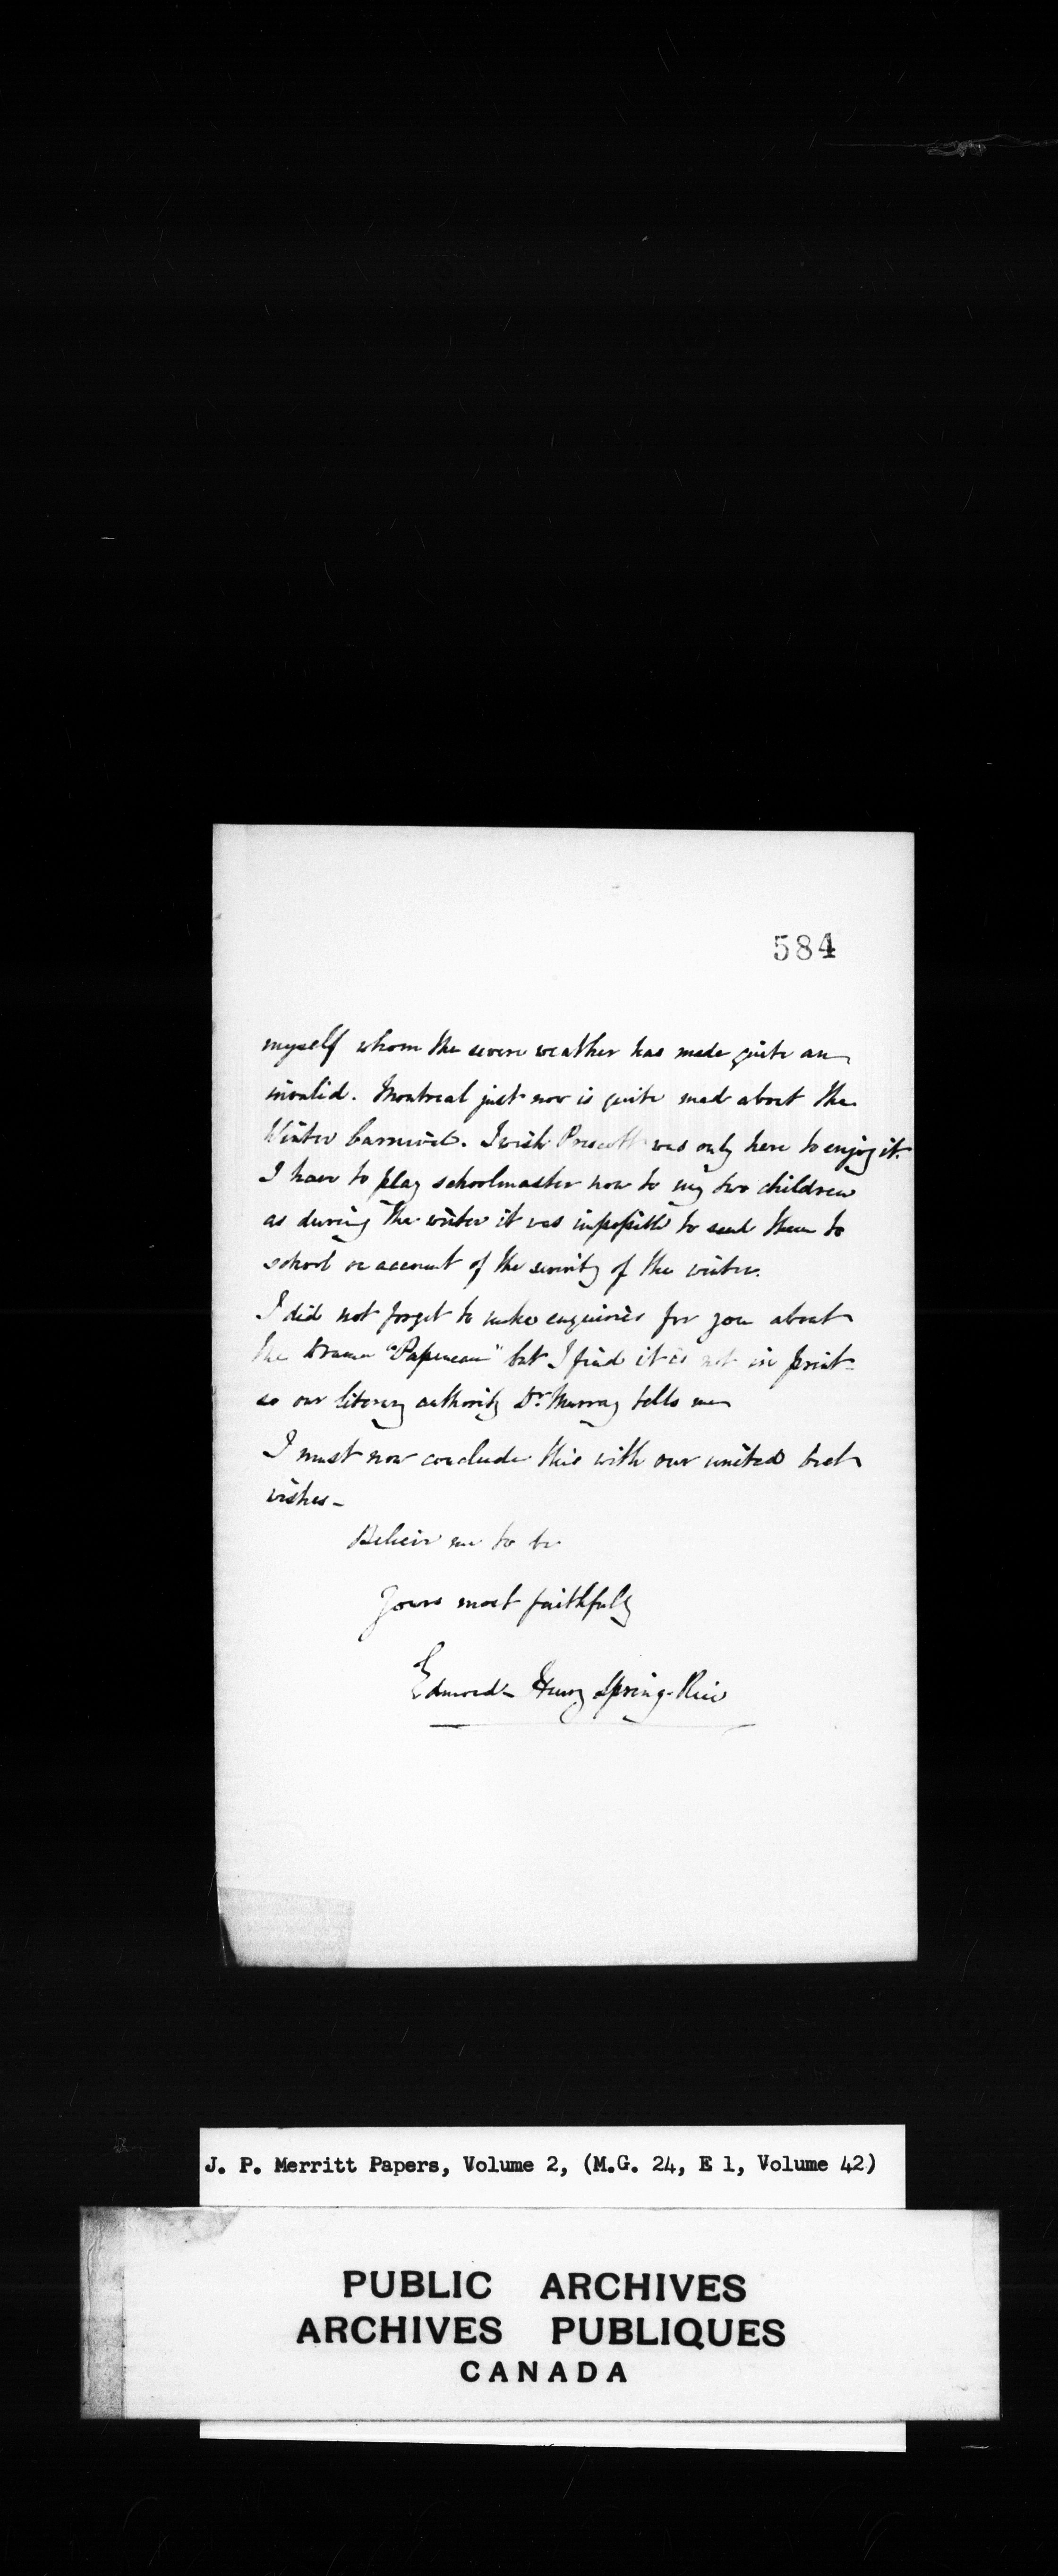 584
myself whom the severe weather has made quite an
invalid. Montreal just now is quite mad about the
Winter Carnival. I wish Prescott was only here to enjoy it.
I have to play schoolmaster now to my two children
as during the winter it was impossible to send them to
school on account of the severity of the winter.
I did not forget to make enquiries for you about
the Drama "Papineau" but I find it is not in print
so our literary authority Dr. Murray tells me
I must now conclude this with our united best
wishes -
Believe me to be
Yours most faithfully
Edmond Henry Spring-Rice
J. P. Merritt Papers, Volume 2, (M.G. 24, E 1, Volume 42)
PUBLIC ARCHIVES
ARCHIVES PUBLIQUES
CANADA